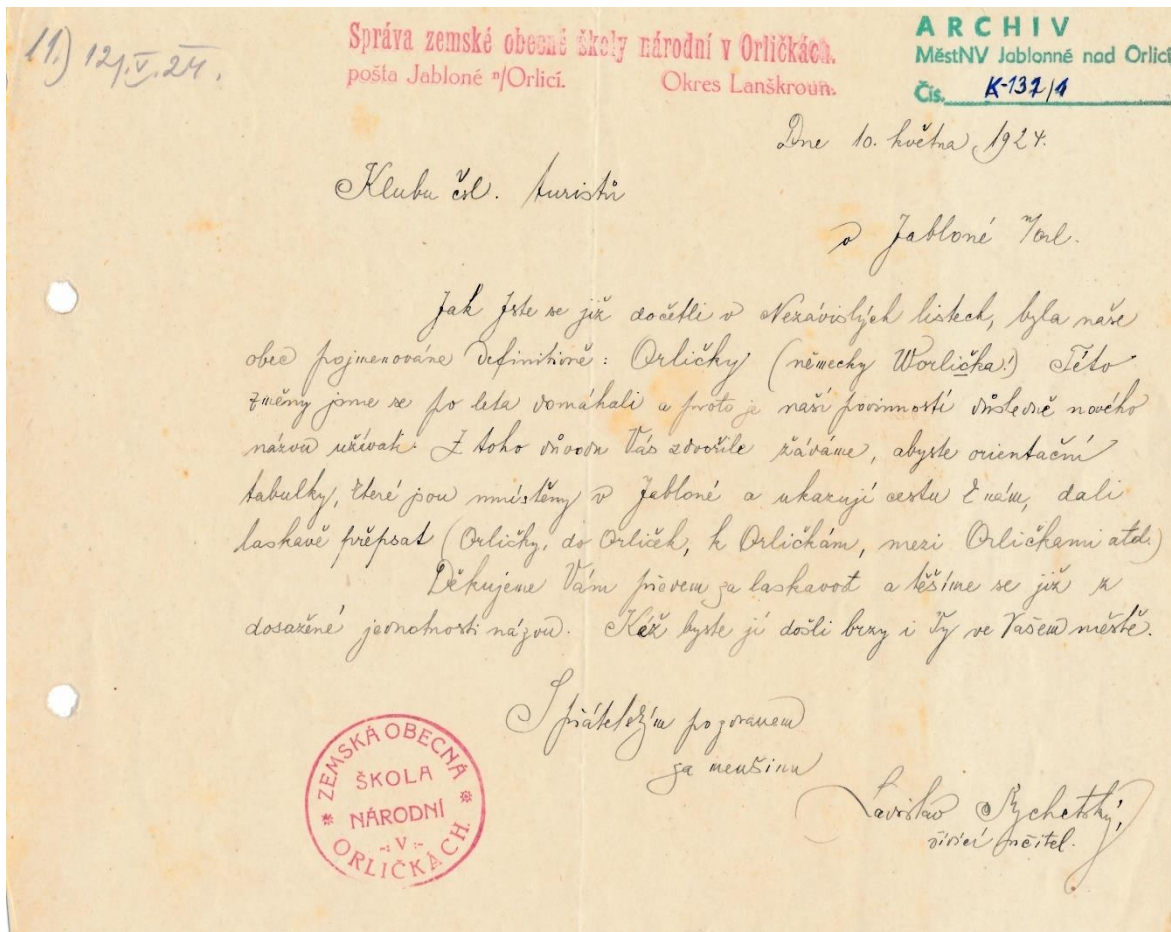 11.) 12/V. 24.
Správa zemské obecné školy národní v Orličkách.
pošta Jabloné n/Orlicí. Okres Lanškroun.
ARCHIV
MěstNV Jablonné nad Orlicí
Čís. K-137/1
Dne 10. května 1924.
Klubu čsl. turistů
v Jabloné n/Orl.
Jak Jste se již dočetli v Nezávislých listech, byla naše
obec pojmenována definitivně: Orličky (německy Worlička!) Této
změny jsme se po léta domáhali a proto je naší povinností důsledně nového
názvu užívati. Z toho důvodu Vás zdvořile žádáme, abyste orientační
tabulky, které jsou umístěny v Jabloné a ukazují cestu k nám, dali
laskavě přepsat (Orličky, do Orliček, k Orličkám, mezi Orličkami atd.)
Děkujeme Vám předem za laskavost a těšíme se již z
dosažené jednotnosti názvu. Kéž byste jí došli brzy i Vy ve Vašem městě.
S přátelským pozdravem
za menšinu
Ladislav Rychetský,
řídící učitel.
ZEMSKÁ OBECNÁ
ŠKOLA
NÁRODNÍ
-: V :-
ORLIČKÁCH.